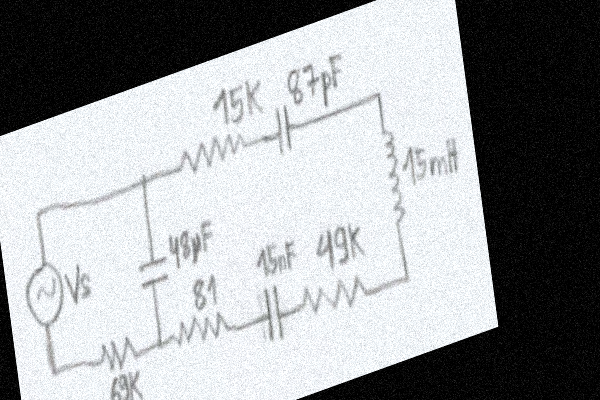 15K
87pF
15mH
48pF
Vs
81
15nF
49K
69K